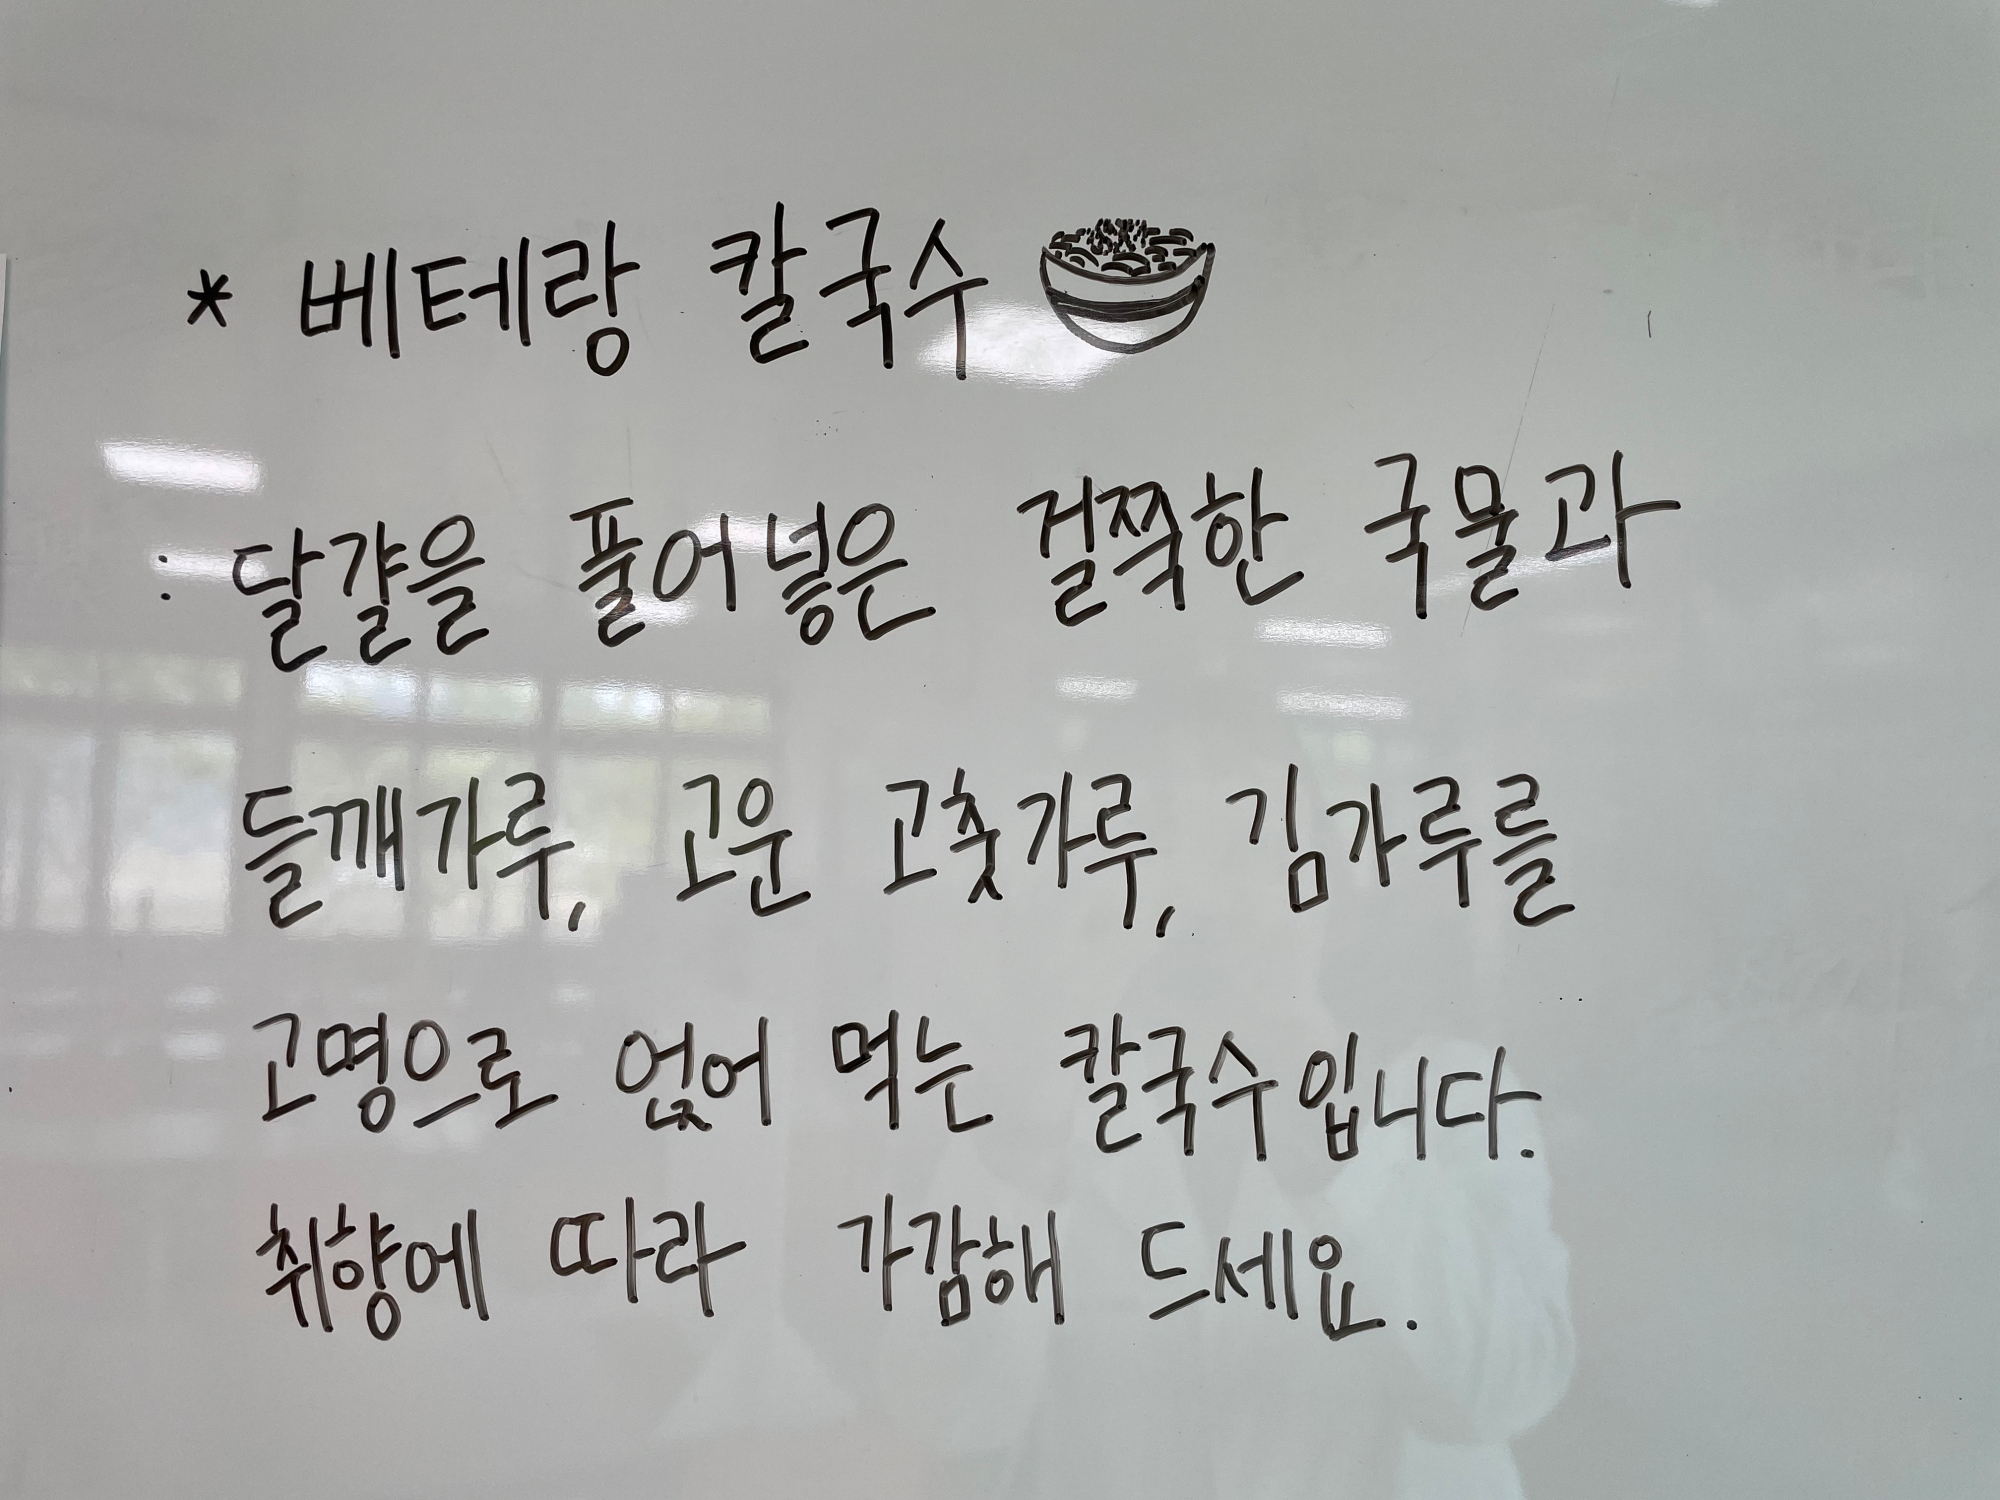 * 베테랑 칼국수
: 달걀을 풀어넣은 걸쭉한 국물과
들깨가루, 고운 고춧가루, 김가루를
고명으로 얹어 먹는 칼국수입니다.
취향에 따라 가감해 드세요.